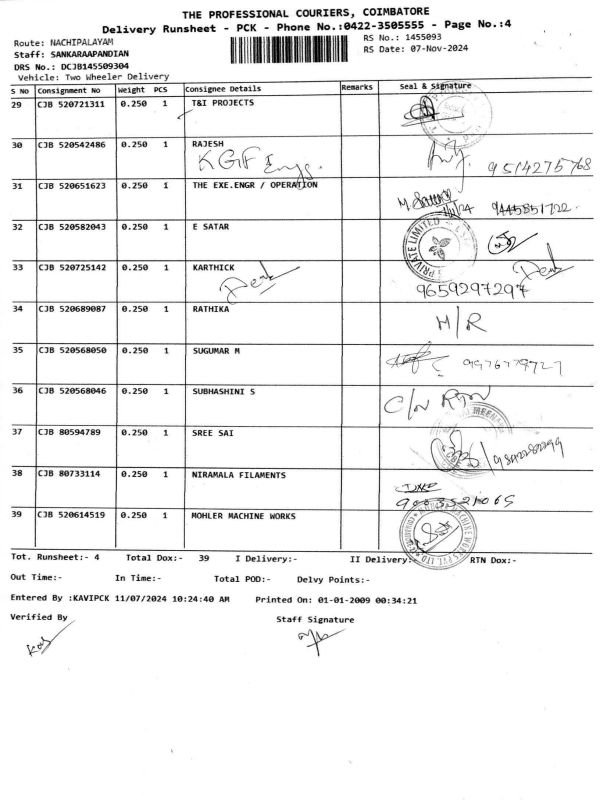 THE PROFESSIONAL COURIERS, COIMBATORE
Delivery Runsheet - PCK - Phone No.:0422-3505555 - Page No.:4
Route: NACHIPALAYAM
RS No.: 1455093
Staff: SANKARAAPANDIAN
RS Date: 07-Nov-2024
DRS No.: DCJB145509304
Vehicle: Two Wheeler Delivery
S No Consignment No Weight PCS Consignee Details Remarks Seal & Signature
29 CJB 520721311 0.250 1 T&I PROJECTS
30 CJB 520542486 0.250 1 RAJESH
KGF Engs. 9514275768
31 CJB 520651623 0.250 1 THE EXE.ENGR / OPERATION
9445851722
32 CJB 520582043 0.250 1 E SATAR
PRIVATE LIMITED
33 CJB 520725142 0.250 1 KARTHICK
9659297297
34 CJB 520689087 0.250 1 RATHIKA
M/R
35 CJB 520568050 0.250 1 SUGUMAR M
9976779727
36 CJB 520568046 0.250 1 SUBHASHINI S
C/N RTN
37 CJB 80594789 0.250 1 SREE SAI
38 CJB 80733114 0.250 1 NIRAMALA FILAMENTS
9003521065
39 CJB 520614519 0.250 1 MOHLER MACHINE WORKS
Tot. Runsheet:- 4 Total Dox:- 39 I Delivery:- II Delivery:- RTN Dox:-
Out Time:- In Time:- Total POD:- Delvy Points:-
Entered By :KAVIPCK 11/07/2024 10:24:40 AM Printed On: 01-01-2009 00:34:21
Verified By Staff Signature